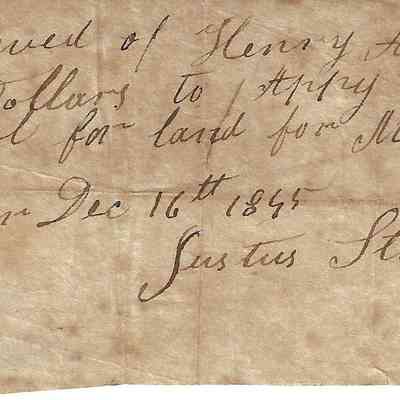 ived of Henry A
Dollars to Appy
l for land for M
Dec 16th 1845
Justus St